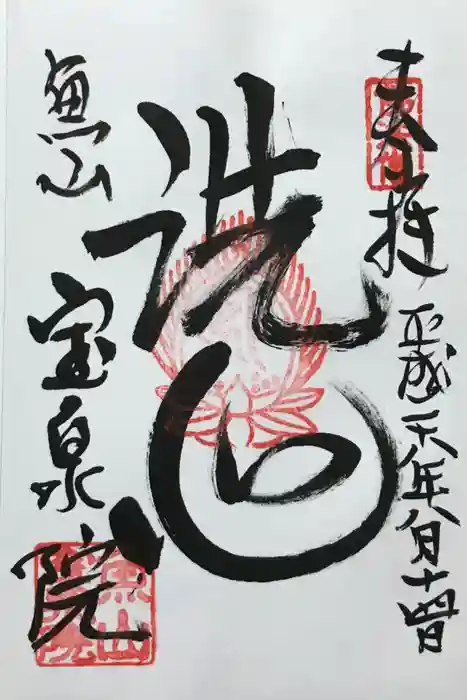 奉拝
平成二十八年八月十四日
洗心
魚山
宝泉院